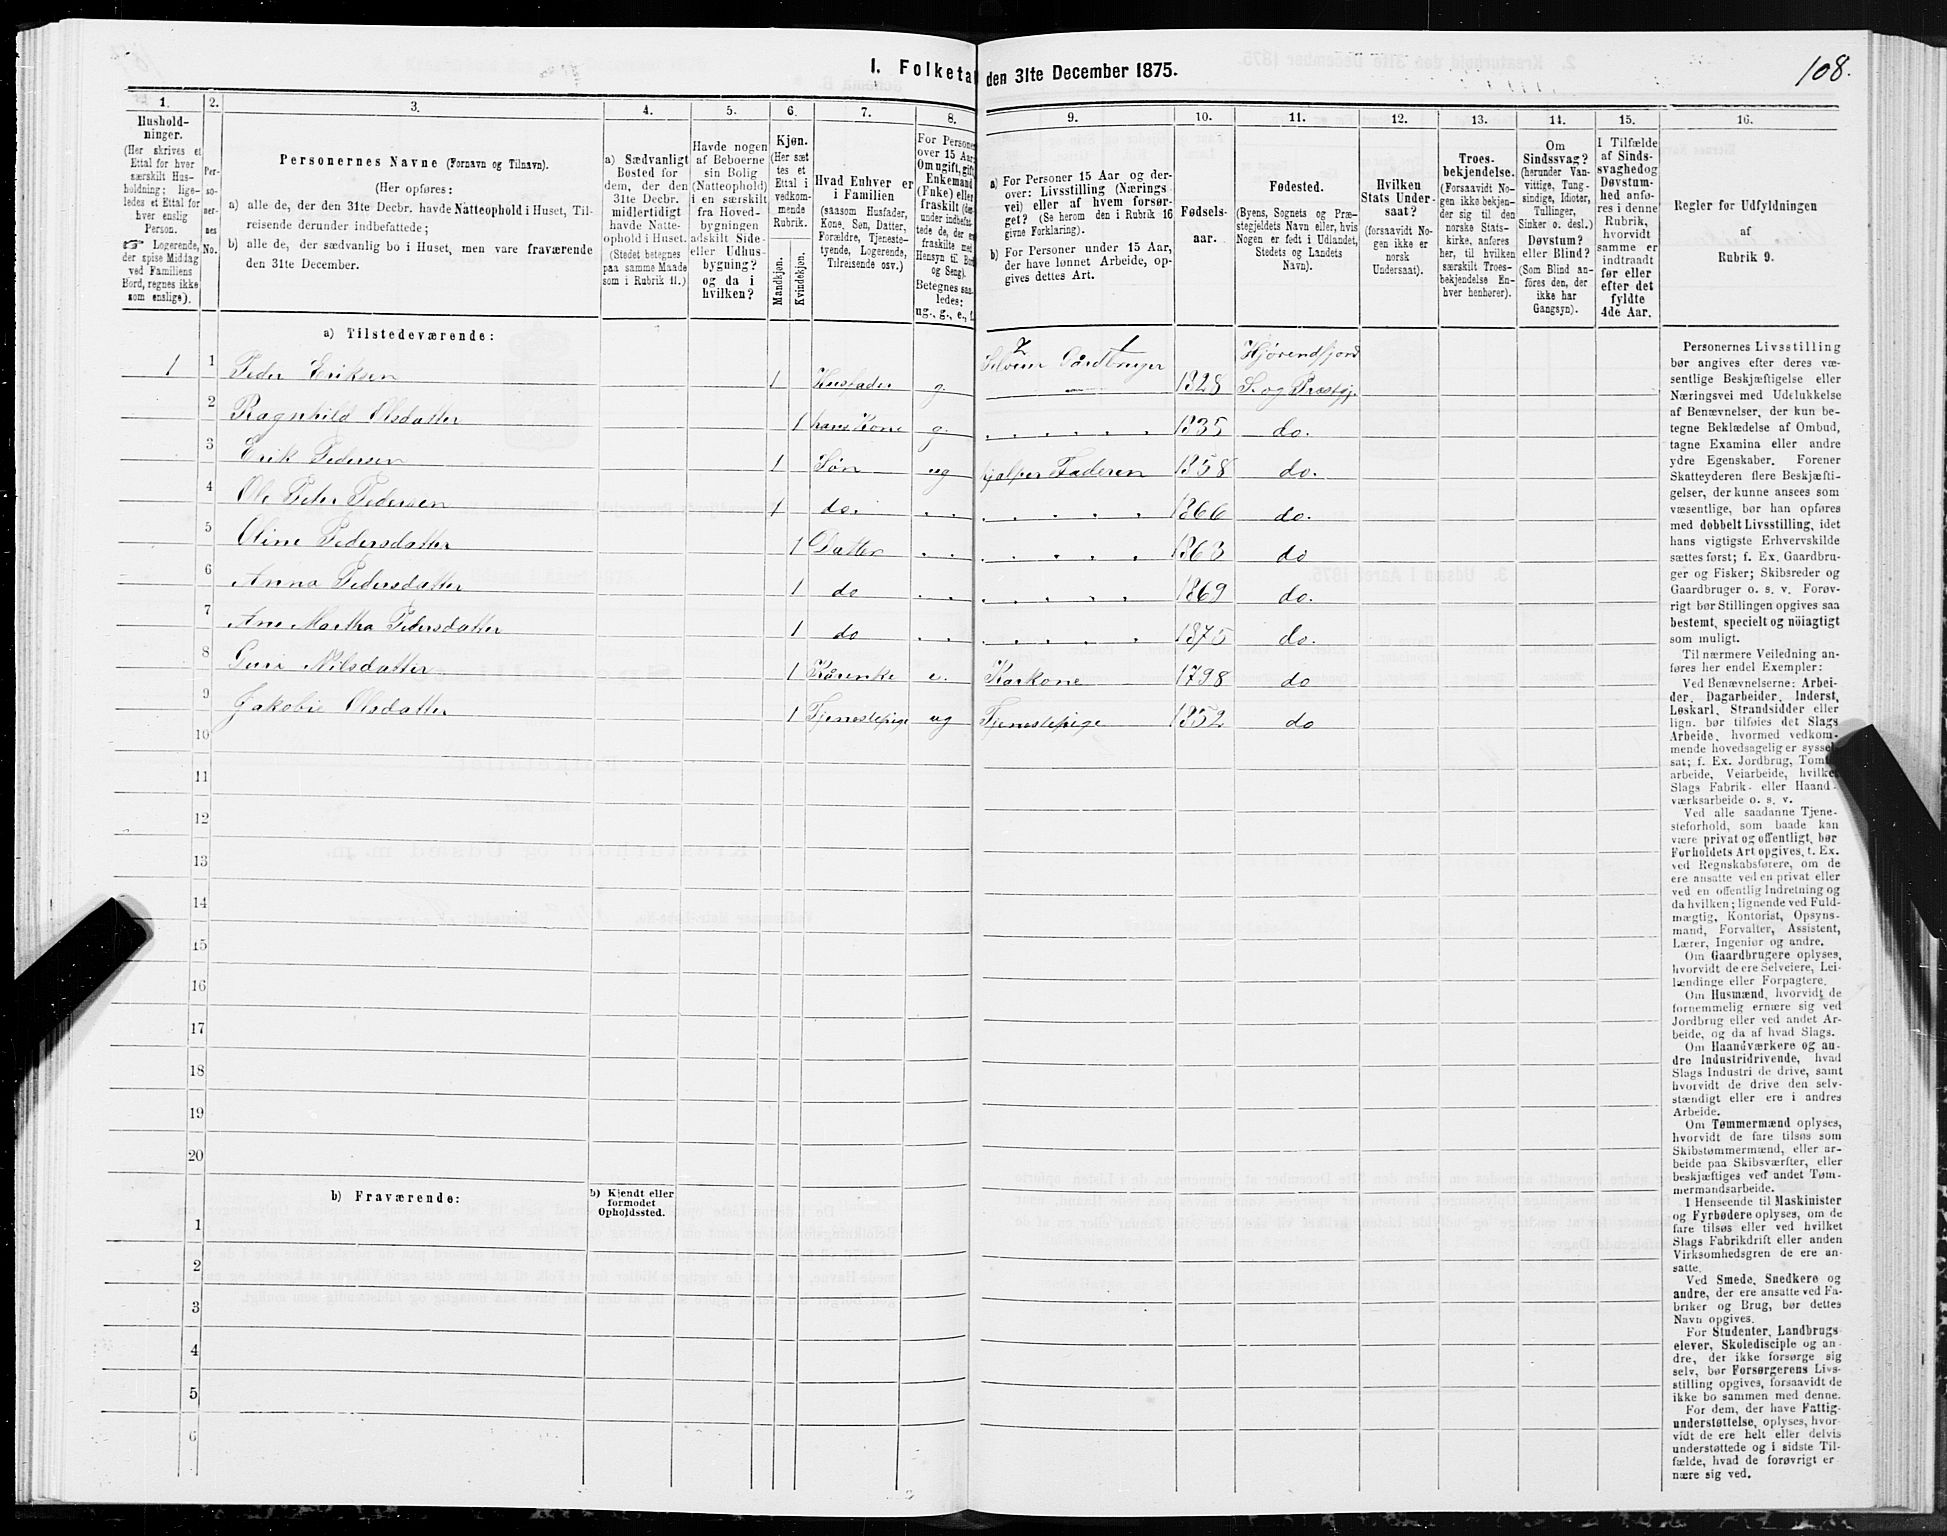 108.
I. Folketal den 31te December 1875.
1. 2. 3. 4. 5. 6. 7. 8. 9. 10. 11. 12. 13. 14. 15. 16.
Hushold-
ninger.
(Her skrives et
Ettal for hver
særskilt Hus-
holdning; lige-
ledes et Ettal for
hver enslig
Person.
☞ Logerende,
der spise Middag
ved Familiens
Bord, regnes ikke
som enslige).
Per-
so-
ner-
nes
No.
Personernes Navne (Fornavn og Tilnavn).
(Her opføres:
a) alle de, der den 31te Decbr. havde Natteophold i Huset, Til-
reisende derunder indbefattede;
b) alle de, der sædvanlig bo i Huset, men vare fraværende
den 31te December.
a) Sædvanligt
Bosted for
dem, der den
31te Decbr.
midlertidigt
havde Natte-
ophold i Huset.
(Stedet betegnes
paa samme Maade
som i Rubrik 11.)
Havde nogen
af Beboerne
sin Bolig
(Natteophold)
i en særskilt
fra Hoved-
bygningen
adskilt Side-
eller Udhus-
bygning?
og da i
hvilken?
Kjøn.
(Her sæt-
tes et
Ettal i
vedkom-
mende
Rubrik.
Mandkjøn.
Kvindekjøn.
Hvad Enhver er
i Familien
(saasom Husfader,
Kone, Søn, Datter,
Forældre, Tjeneste-
tyende, Logerende,
Tilreisende osv.)
For Personer
over 15 Aar:
Om ugift, gift,
Enkemand
(Enke) eller
fraskilt (der-
under indbefat-
tede de, der er
fraskilte med
Hensyn til Bord
og Seng).
Betegnes saa-
ledes:
ug., g., e., f.
a) For Personer 15 Aar og der-
over: Livsstilling (Nærings-
vei) eller af hvem forsør-
get? (Se herom den i Rubrik 16
givne Forklaring).
b) For Personer under 15 Aar,
der have lønnet Arbeide, op-
gives dettes Art.
Fødsels-
aar.
Fødested.
(Byens, Sognets og Præ-
stegjeldets Navn eller, hvis
Nogen er født i Udlandet,
Stedets og Landets
Navn).
Hvilken
Stats Under-
saat?
(forsaavidt No-
gen ikke er
norsk
Undersaat).
Troes-
bekjendelse.
(Forsaavidt No-
gen ikke bekjen-
der sig til den
norske Stats-
kirke, anføres
her, til hvilken
særskilt Troes-
bekjendelse En-
hver henhører).
Om
Sindssvag?
(herunder Van-
vittige, Tung-
sindige, Idioter,
Tullinger,
Sinker o. desl.)
Døvstum?
eller Blind?
(Som Blind an-
føres den, der
ikke har
Gangsyn).
I Tilfælde
af Sinds-
svaghed og
Døvstum-
hed anfø-
res i denne
Rubrik,
hvorvidt
samme er
indtraadt
før eller
efter det
fyldte
4de Aar.
Regler for Udfyldningen
af
Rubrik 9.
a) Tilstedeværende:
1 1 Peder Eriksen 1 Husfader g Selveier Gårdbruger 1828 Hjørendfjord S. og Præstgj.
2 Ragnhild Olsdatter 1 hans Kone g. 1835 do.
3 Erik Pedersen 1 Søn ug hjalper Faderen 1858 do.
4 Ole Peter Pedersen 1 do. 1866 do.
5 Oline Pedersdatter 1 Datter 1863 do
6 Anna Pedersdatter 1 do 1869 do.
7 Ane Martha Pedersdatter 1 do 1875 do.
8 Guri Nilsdatter 1 e. Karkone 1798 do
9 Jakobie Olsdatter 1 Tjenestepige ug Tjenestepige 1852 do
10
11
12
13
14
15
16
17
18
19
20
b) Fraværende:
b) Kjendt eller
formodet
Opholdssted.
1
2
3
4
5
6
Personernes Livsstilling
bør angives efter deres væ-
sentlige Beskjæftigelse eller
Næringsvei med Udelukkelse
af Benævnelser, der kun be-
tegne Beklædelse af Ombud,
tagne Examina eller andre
ydre Egenskaber. Forener
Skatteyderen flere Beskjæfti-
gelser, der kunne ansees som
væsentlige, bør han opføres
med dobbelt Livsstilling, idet
hans vigtigste Erhvervskilde
sættes først; f. Ex. Gaardbru-
ger og Fisker; Skibsreder og
Gaardbruger o. s. v. Forøv-
rigt bør Stillingen opgives saa
bestemt, specielt og nöiagtigt
som muligt.
Til nærmere Veiledning an-
føres her endel Exempler:
Ved Benævnelserne: Arbei-
der, Dagarbeider, Inderst,
Løskarl, Strandsidder eller
lign. bør tilføies det Slags
Arbeide, hvormed vedkom-
mende hovedsagelig er syssel-
sat; f. Ex. Jordbrug, Tomte-
arbeide, Veiarbeide, hvilket
Slags Fabrik- eller Haand-
værksarbeide o. s. v.
Ved alle saadanne Tjene-
steforhold, som baade kan
være privat og offentligt, bør
Forholdets Art opgives, t. Ex.
ved Regnskabsførere, om de
ere ansatte ved en privat eller
ved en offentlig Indretning og
da hvilken; lignende ved Fuld-
mægtig, Kontorist, Opsyns-
mand, Forvalter, Assistent,
Lærer, Ingeniør og andre.
Om Gaardbrugere oplyses,
hvorvidt de ere Selveiere, Lei-
lændinge eller Forpagtere.
Om Husmænd, hvorvidt de
fornemmelig ernære sig ved
Jordbrug eller ved andet Ar-
beide, og da af hvad Slags.
Om Haandværkere og an-
dre Industridrivende, hvad
Slags Industri de drive, samt
hvorvidt de drive den selv-
stændigt eller ere i andres
Arbeide.
Om Tømmermænd oplyses,
hvorvidt de fare tilsøs som
Skibstømmermænd, eller ar-
beide paa Skibsværfter, eller
beskjæftiges ved andet Tøm-
mermandsarbeide.
I Henseende til Maskinister
og Fyrbødere oplyses, om de
fare tilsøs eller ved hvilket
Slags Fabrikdrift eller anden
Virksomhedsgren de ere an-
satte.
Ved Smede, Snedkere og
andre, der ere ansatte ved Fa-
briker og Brug, bør dettes
Navn opgives.
For Studenter, Landbrugs
elever, Skoledisciple og an-
dre, der ikke forsørge sig
selv, bør Forsørgerens Livs-
stilling opgives, forsaavidt de
ikke bo sammen med denne.
For dem, der have Fattig-
understøttelse, oplyses, hvor-
vidt de ere helt eller delvis
understøttede og i sidste Til-
fælde, hvad de forøvrigt er-
nære sig ved.